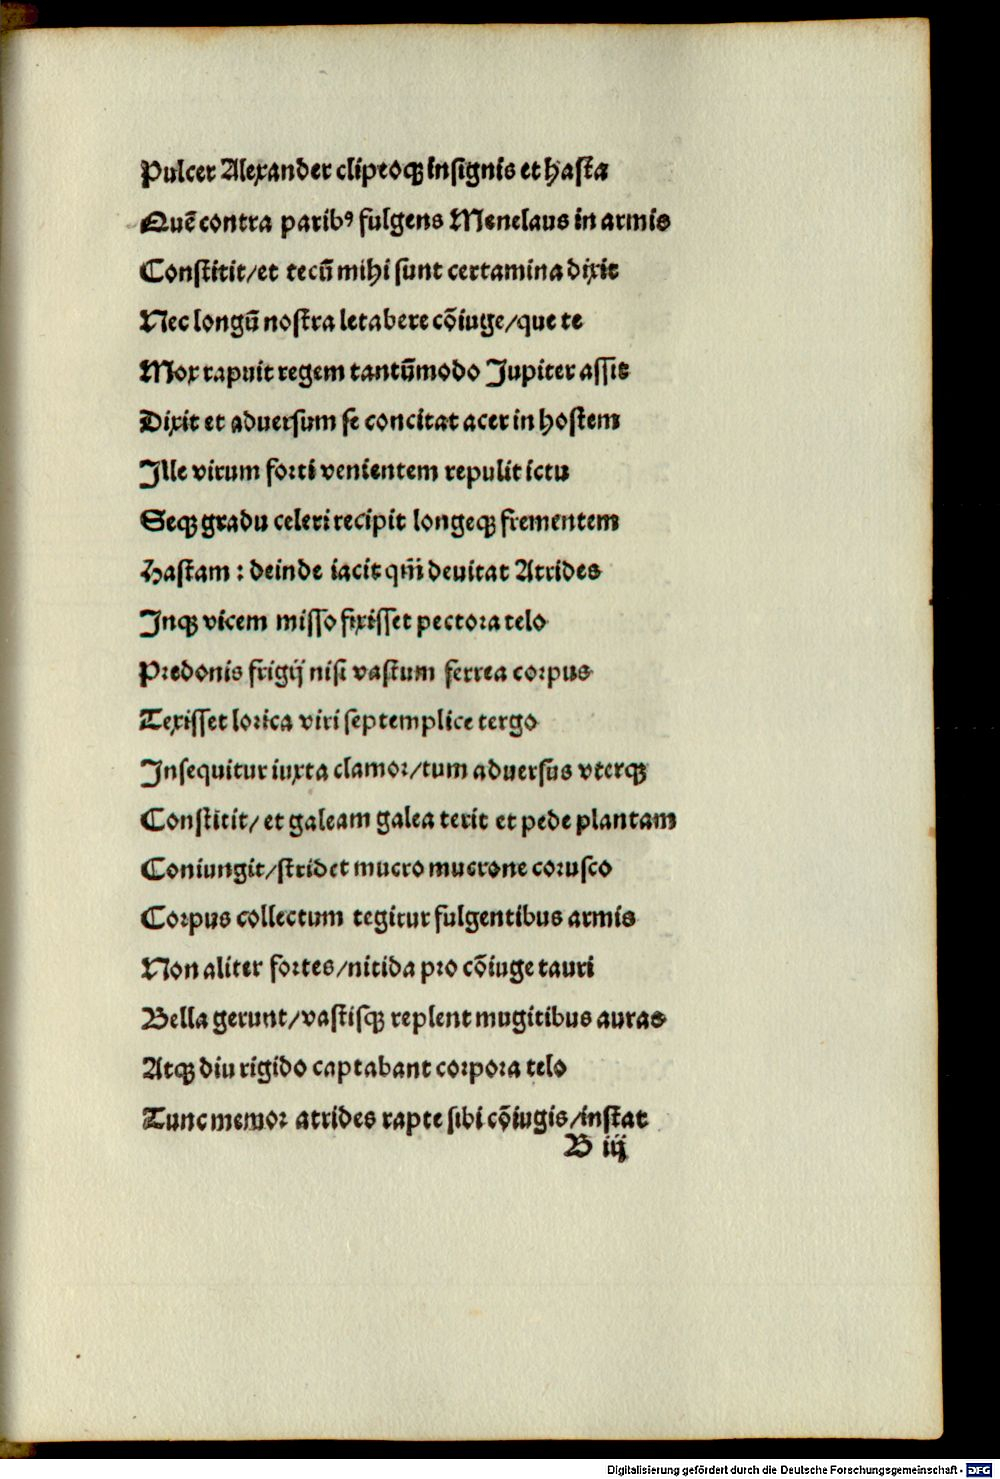 Pulcer Alexander clipeoqꝫ insignis et hasta
Quē contra paribꝰ fulgens Menelaus in armis
Constitit/et tecū mihi sunt certamina dixit
Nec longū nostra letabere cōiuge/que te
Mox rapuit regem tantūmodo Jupiter assis
Dixit et aduersum se concitat acer in hostem
Jlle virum forti venientem repulit ictu
Seqꝫ gradu celeri recipit longeqꝫ frementem
Hastam : deinde iacit qm̄ deuitat Atrides
Jnqꝫ vicem misso fixisset pectora telo
Predonis frigij nisi vastum ferrea corpus
Texisset lorica viri septemplice tergo
Jnsequitur iuxta clamor/tum aduersus vterqꝫ
Constitit/ et galeam galea terit et pede plantam
Coniungit/stridet mucro mucrone corusco
Corpus collectum tegitur fulgentibus armis
Non aliter fortes/nitida pro cōiuge tauri
Bella gerunt/vastisqꝫ replent mugitibus auras
Atqꝫ diu rigido captabant corpora telo
Tunc memor atrides rapte sibi cōiugis/instat
B iij
Digitalisierung gefördert durch die Deutsche Forschungsgemeinschaft - DFG